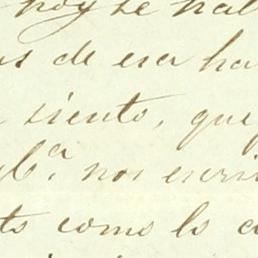 hoy se hal
s de esa ha
siento, que
b.ª nos escri
to como lo a